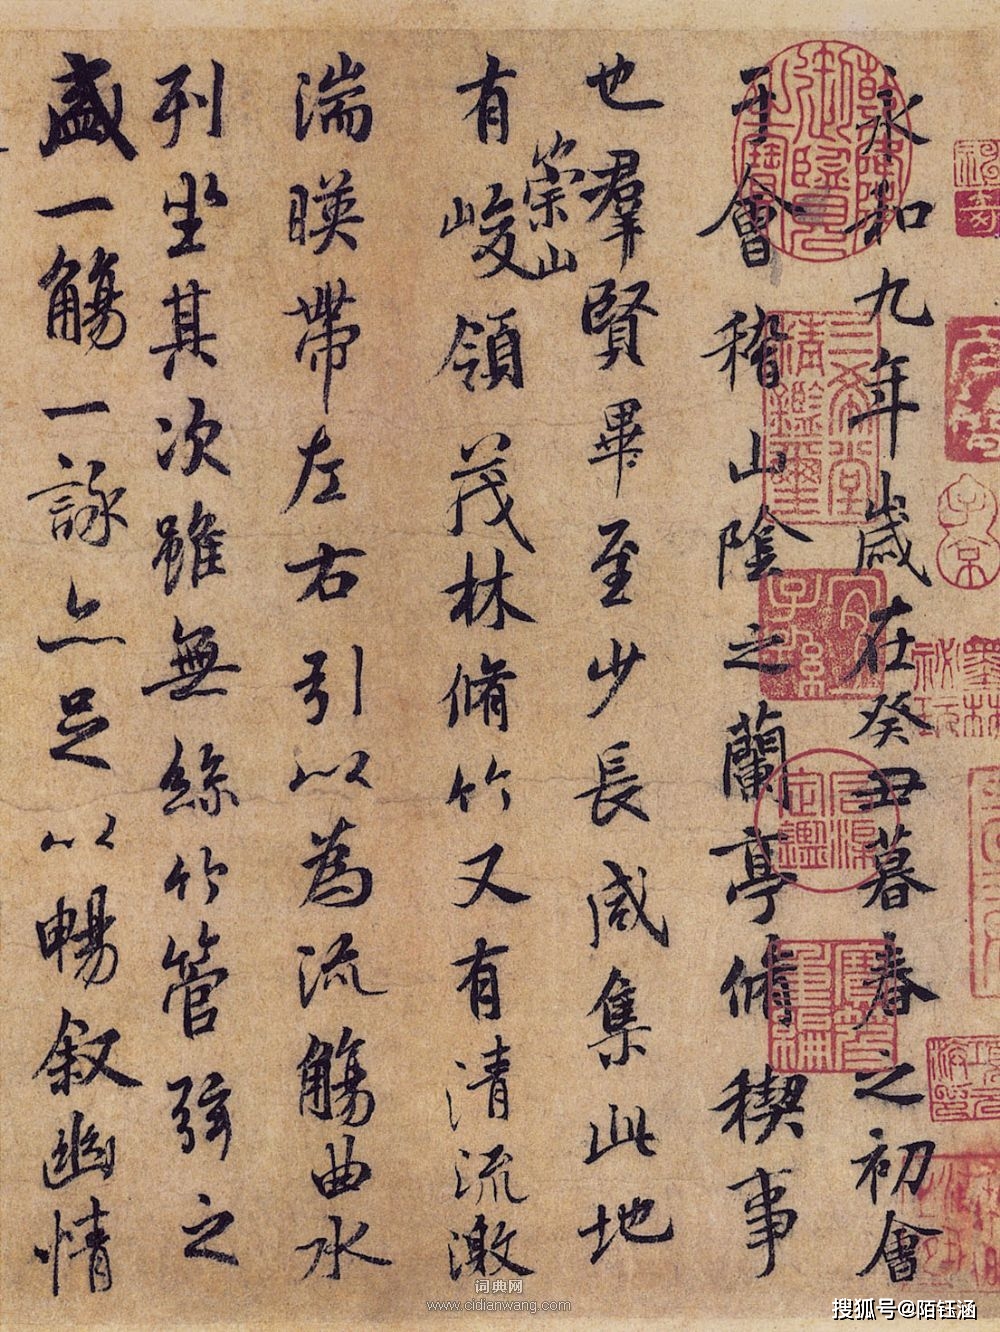 永和九年歲在癸丑暮春之初會
于會稽山陰之蘭亭脩稧事
也羣賢畢至少長咸集此地
有崇山峻領茂林脩竹又有清流激
湍暎帶左右引以為流觴曲水
列坐其次雖無絲竹管弦之
盛一觴一詠亦足以暢叙幽情
三希堂精鑑璽
宜子孫
石渠定鑑
寶笈重編
子京
墨林秘玩
词典网
www.cidianwang.com
搜狐号@陌钰涵